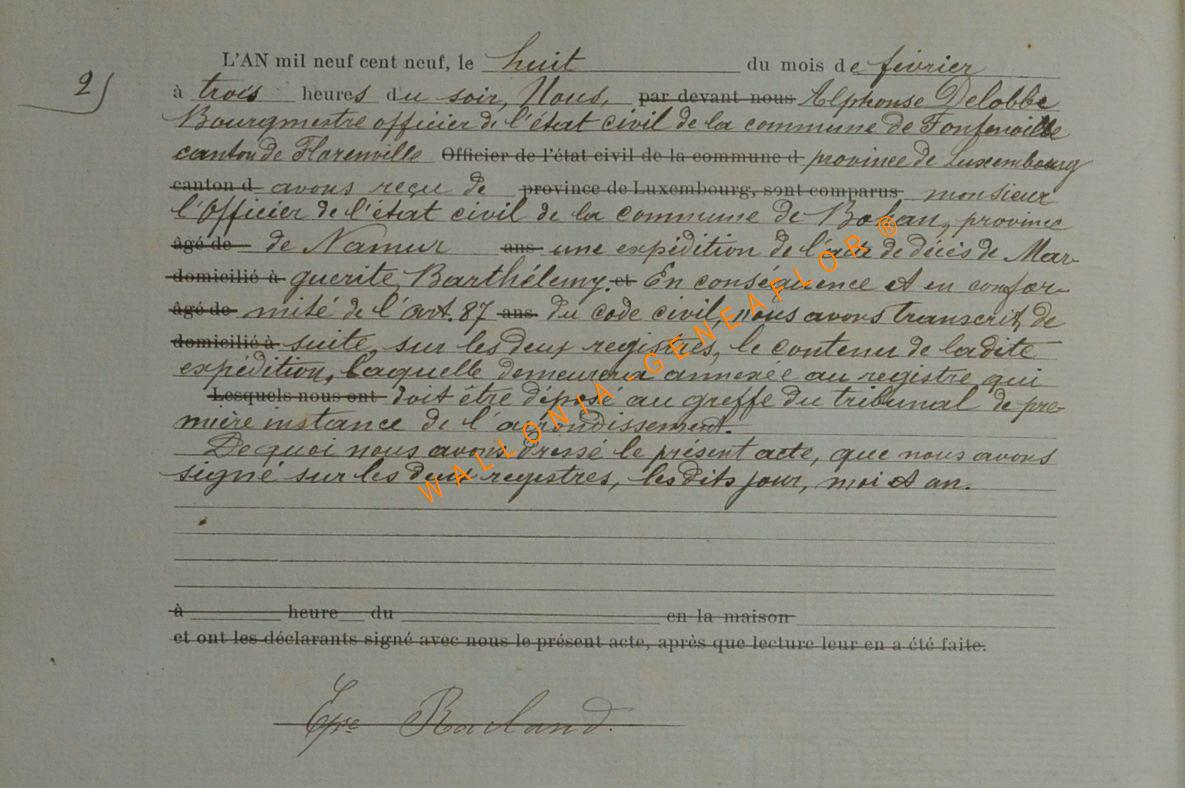 L'AN mil neuf cent neuf, le huit du mois de février
2)
à trois heures du soir, Nous, par devant nous Alphonse Delobbe
Bourgmestre officier de l'état civil de la commune de Fontenoille
canton de Florenville Officier de l'état civil de la commune d province de Luxembourg
canton d avons reçu de province de Luxembourg, sont comparus monsieur
l'Officier de l'état civil de la commune de Bohan, province
âgé de de Namur ans une expédition de l'acte de décès de Mar-
domicilié à guerite Barthélemy. et En conséquence et en confor-
âgé de mité de l'art. 87 ans du code civil, nous avons transcrit, de
domicilié à suite, sur les deux registres, le contenu de la dite
expédition, laquelle demeurera annexée au registre qui
Lesquels nous ont doit être déposé au greffe du tribunal de pre-
mière instance de l'arrondissement.
De quoi nous avons dressé le présent acte, que nous avons
signé sur les deux registres, les dits jour, moi et an.
à heure du en la maison
et ont les déclarants signé avec nous le présent acte, après que lecture leur en a été faite.
WALLONIA-GENEAFLOR®